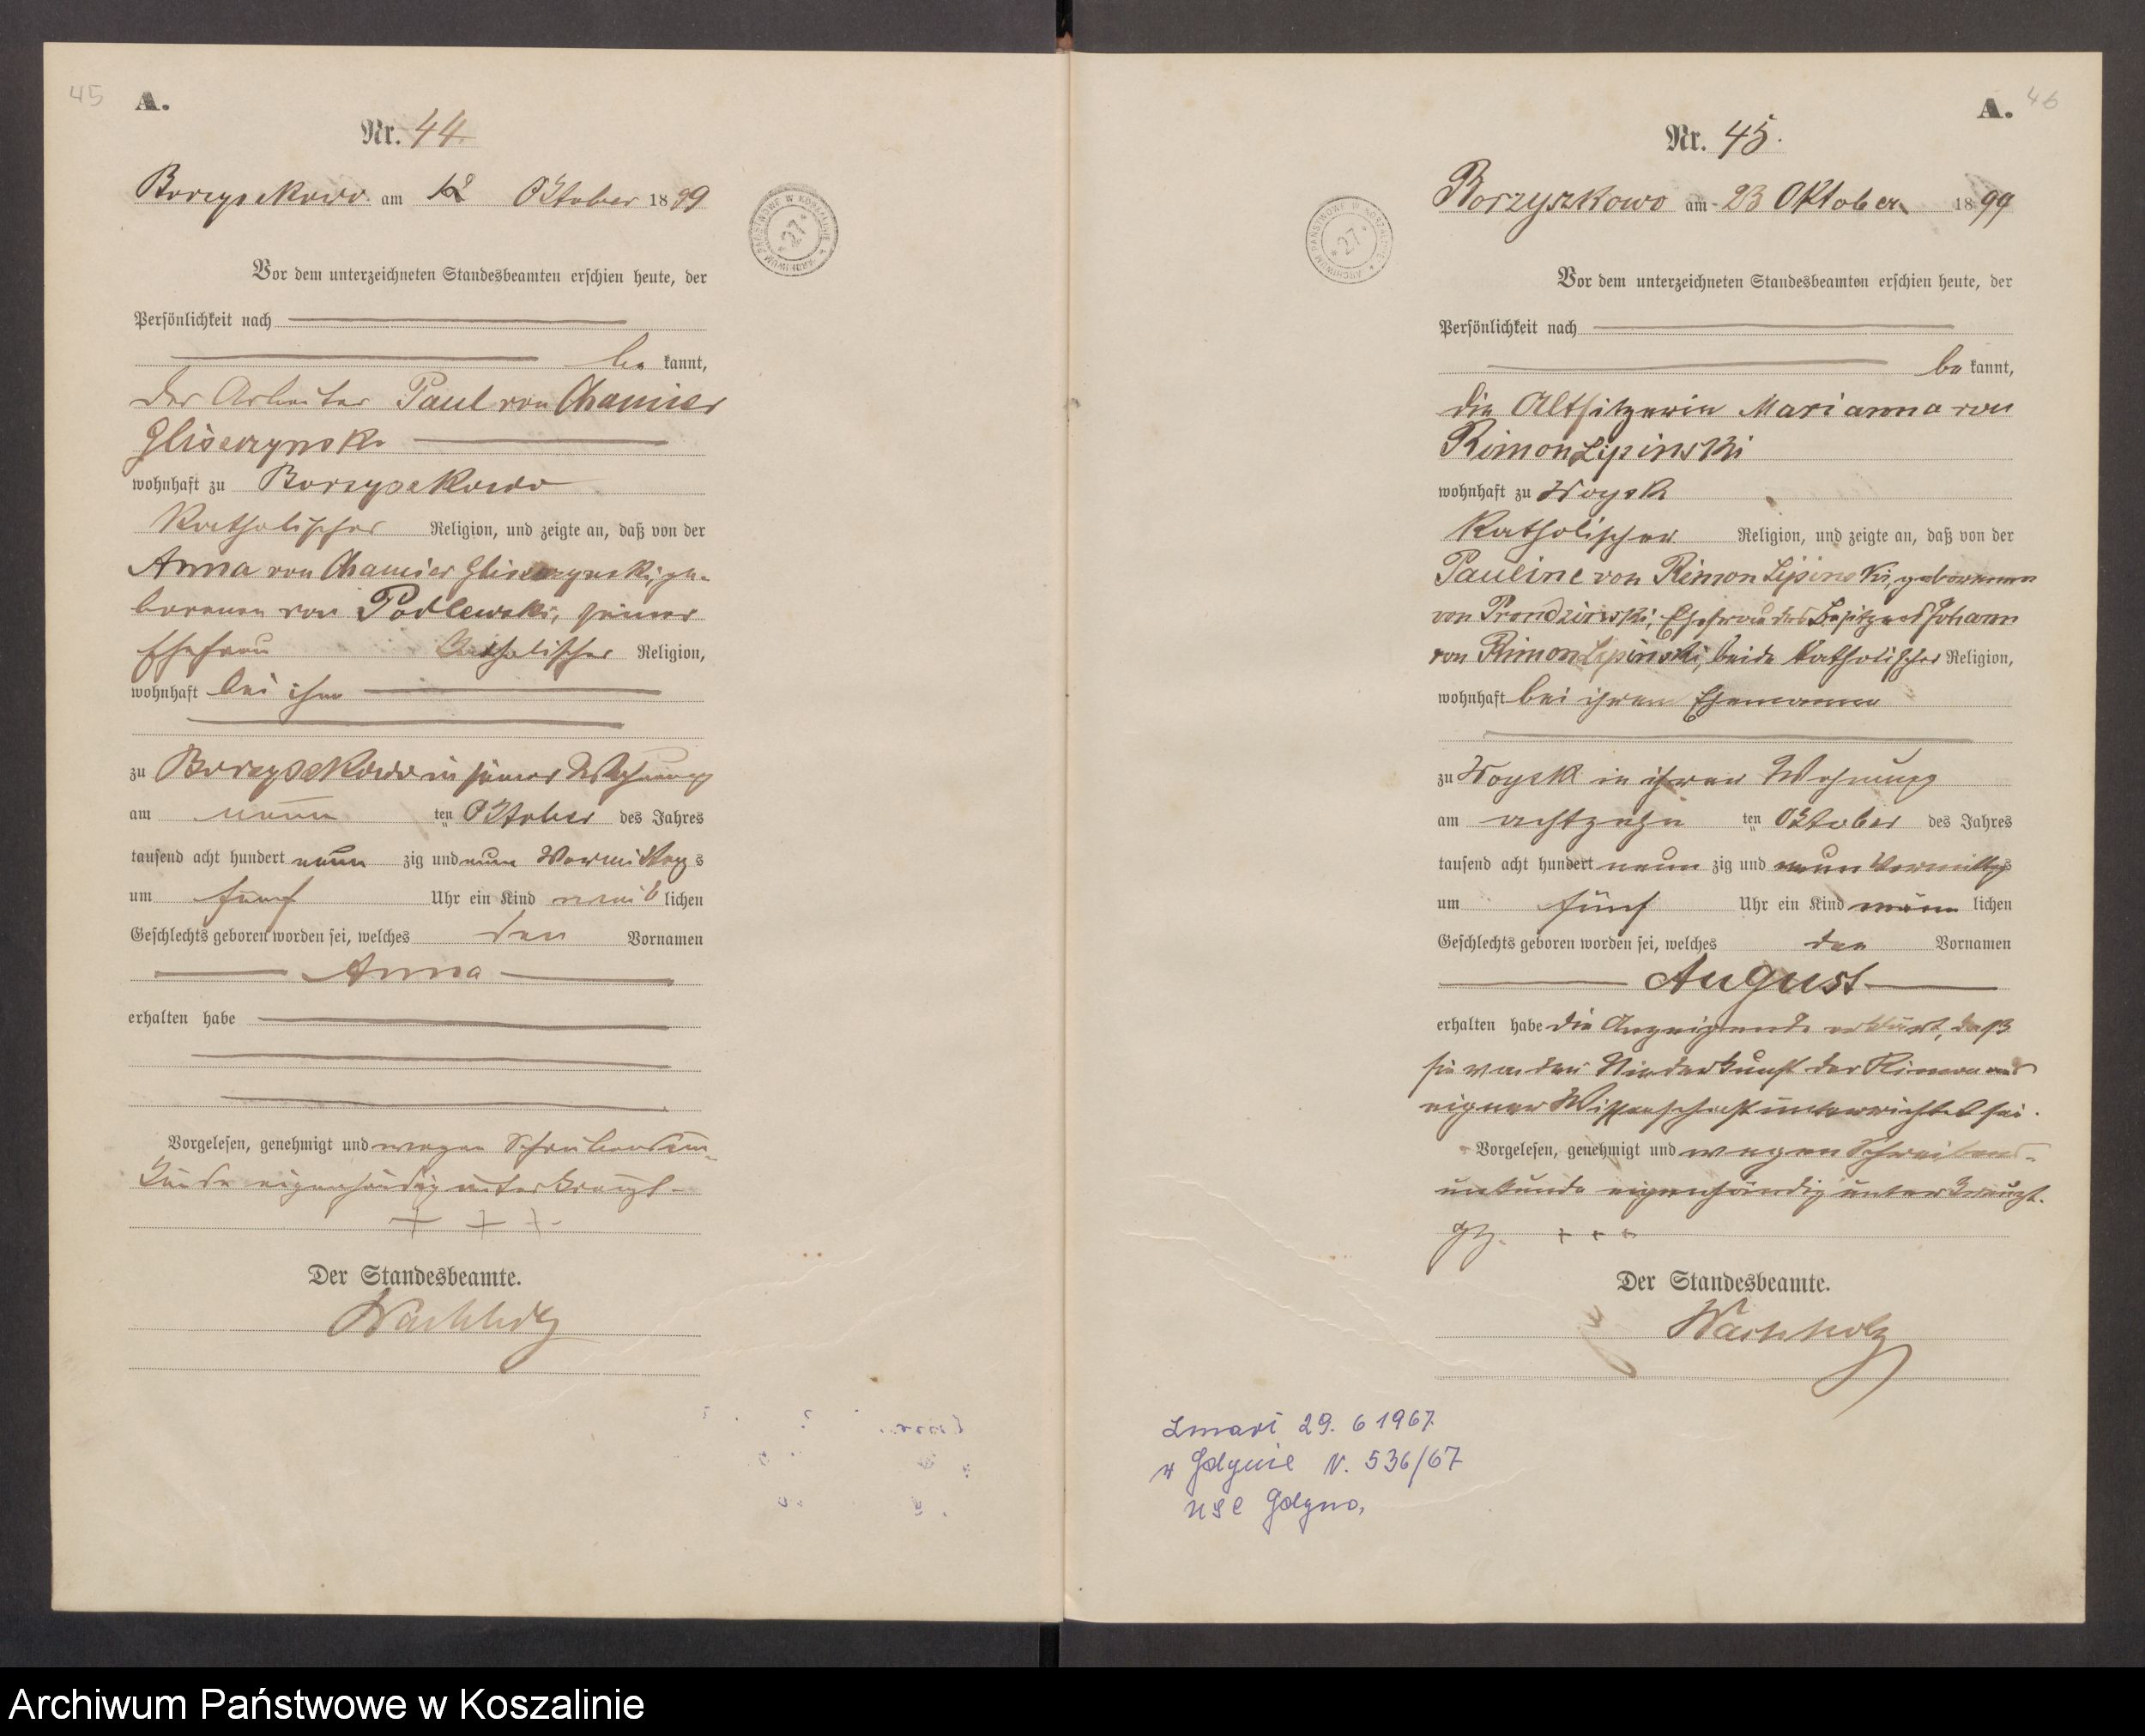 45
A.
Nr. 44.
Borzyszkowo am 12 Oktober 1899
Vor dem unterzeichneten Standesbeamten erschien heute, der
Persönlichkeit nach
be kannt,
der Arbeiter Paul von Chamier
Gliszczynski
wohnhaft zu Borzyszkowo
katholischer Religion, und zeigte an, daß von der
Anna von Chamier Gliszczynski, ge-
borenen von Podlewski, seiner
Ehefrau katholischer Religion,
wohnhaft bei ihm
zu Borzyszkowo in seiner Wohnung
am neun ten Oktober des Jahres
tausend acht hundert neun zig und neun Vormittags
um fünf Uhr ein Kind weib lichen
Geschlechts geboren worden sei, welches den Vornamen
Anna
erhalten habe
Vorgelesen, genehmigt und wegen Schreibensun-
kunde eigenhändig unterkreuzt.
+ + +
Der Standesbeamte.
Wachholz
ARCHIWUM PAŃSTWOWE W KOSZALINIE
* 27 *
46
A.
Nr. 45.
Borzyszkowo am 23 Oktober 1899
Vor dem unterzeichneten Standesbeamten erschien heute, der
Persönlichkeit nach
be kannt,
die Altsitzerin Marianna von
Rimon Lipinski
wohnhaft zu Woysk
katholischer Religion, und zeigte an, daß von der
Pauline von Rimon Lipinski, geborenen
von Prondzinski, Ehefrau des Besitzers Johann
von Rimon Lipinski, beide katholischer Religion,
wohnhaft bei ihrem Ehemanne
zu Woysk in ihrer Wohnung
am achtzehn ten Oktober des Jahres
tausend acht hundert neun zig und neun Vormittags
um fünf Uhr ein Kind männ lichen
Geschlechts geboren worden sei, welches den Vornamen
August
erhalten habe die Anzeigende erklärt, daß
sie von der Niederkunft der Rimon aus
eigner Wissenschaft unterrichtet sei.
Vorgelesen, genehmigt und wegen Schreibens-
unkunde eigenhändig unterkreuzt.
gez. + + +
Der Standesbeamte.
Wachholz
ARCHIWUM PAŃSTWOWE W KOSZALINIE
* 27 *
Zmarł 29. 6 1967.
w Gdynie N. 536/67
USC Gdynia
Archiwum Państwowe w Koszalinie